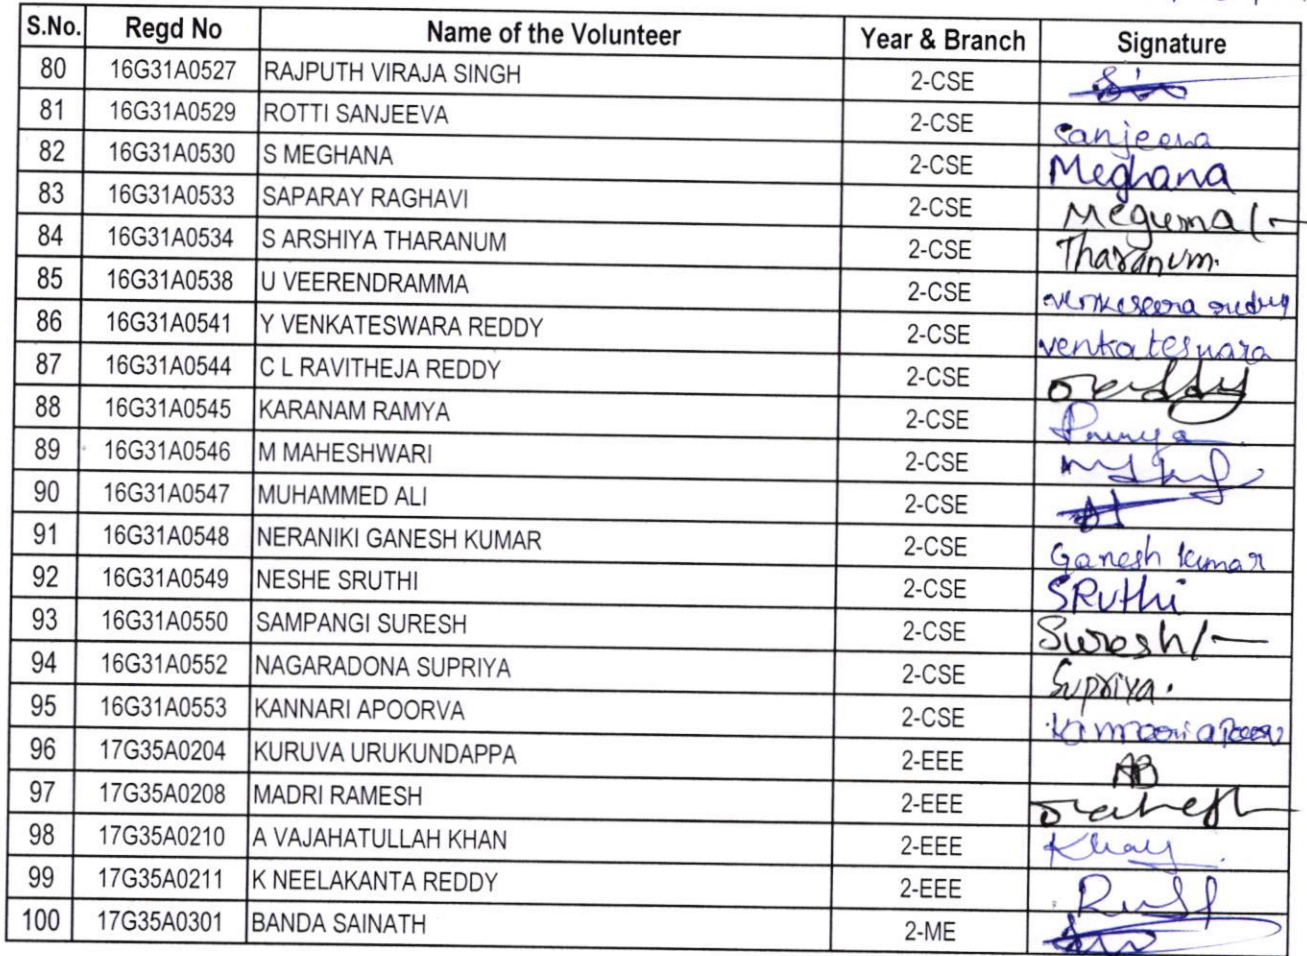 S.No. Regd No Name of the Volunteer Year & Branch Signature
80 16G31A0527 RAJPUTH VIRAJA SINGH 2-CSE
81 16G31A0529 ROTTI SANJEEVA 2-CSE Sanjeeva
82 16G31A0530 S MEGHANA 2-CSE Meghana
83 16G31A0533 SAPARAY RAGHAVI 2-CSE
84 16G31A0534 S ARSHIYA THARANUM 2-CSE Tharanum.
85 16G31A0538 U VEERENDRAMMA 2-CSE
86 16G31A0541 Y VENKATESWARA REDDY 2-CSE venkateswara
87 16G31A0544 C L RAVITHEJA REDDY 2-CSE
88 16G31A0545 KARANAM RAMYA 2-CSE
89 16G31A0546 M MAHESHWARI 2-CSE
90 16G31A0547 MUHAMMED ALI 2-CSE
91 16G31A0548 NERANIKI GANESH KUMAR 2-CSE Ganesh kumar
92 16G31A0549 NESHE SRUTHI 2-CSE SRuthi
93 16G31A0550 SAMPANGI SURESH 2-CSE Suresh/-
94 16G31A0552 NAGARADONA SUPRIYA 2-CSE Supriya.
95 16G31A0553 KANNARI APOORVA 2-CSE
96 17G35A0204 KURUVA URUKUNDAPPA 2-EEE AB
97 17G35A0208 MADRI RAMESH 2-EEE
98 17G35A0210 A VAJAHATULLAH KHAN 2-EEE
99 17G35A0211 K NEELAKANTA REDDY 2-EEE
100 17G35A0301 BANDA SAINATH 2-ME